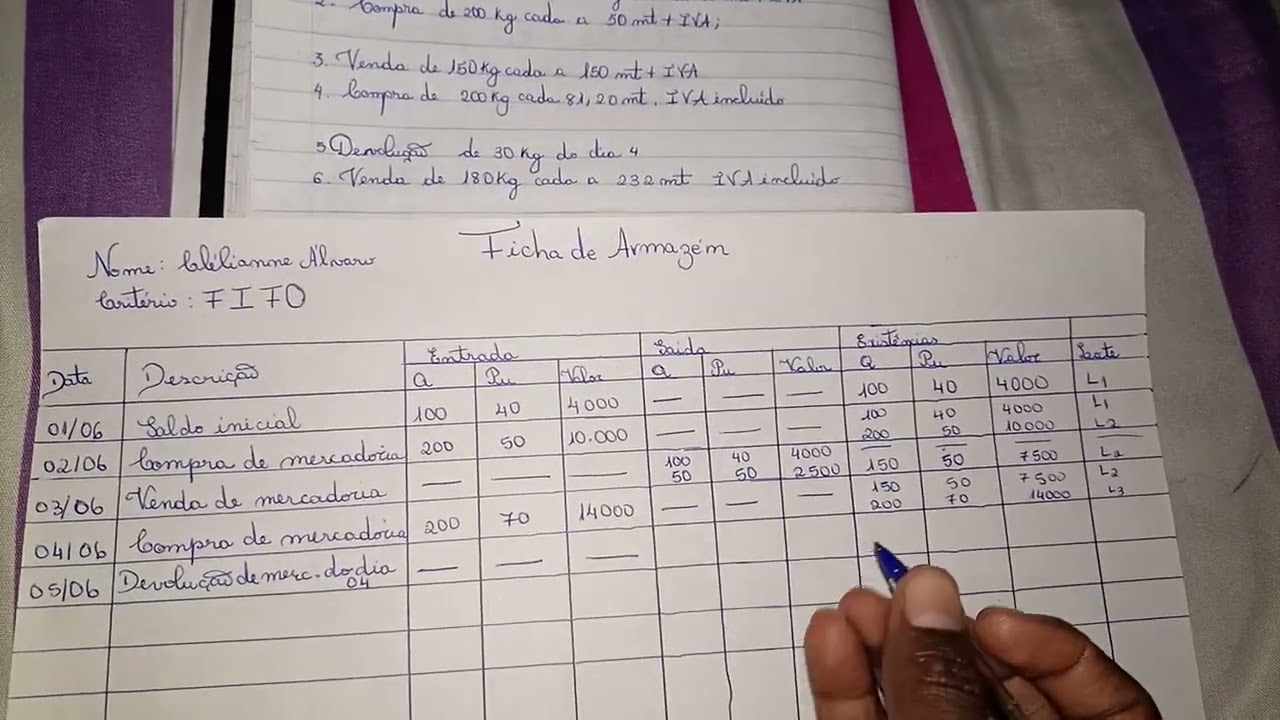 2. Compra de 200 kg cada a 50 mt + IVA;
3. Venda de 150 kg cada a 150 mt + IVA
4. Compra de 200 kg cada 81,20 mt. IVA incluido
5 Devolução de 30 kg do dia 4
6. Venda de 180 kg cada a 232 mt IVA incluido
Ficha de Armazém
Nome: Clélianne Álvaro
Critério: FIFO
Data Descrição Entrada Saída Existências Lote
Q Pu Valor Q Pu Valor Q Pu Valor
01/06 Saldo inicial 100 40 4000 — — — 100 40 4000 L1
02/06 Compra de mercadoria 200 50 10.000 — — — 100 40 4000 L1
200 50 10000 L2
03/06 Venda de mercadoria — — — 100 40 4000 — — — —
50 50 2500 150 50 7500 L2
04/06 Compra de mercadoria 200 70 14000 — — — 150 50 7500 L2
200 70 14000 L3
05/06 Devolução de merc. do dia — — —
04